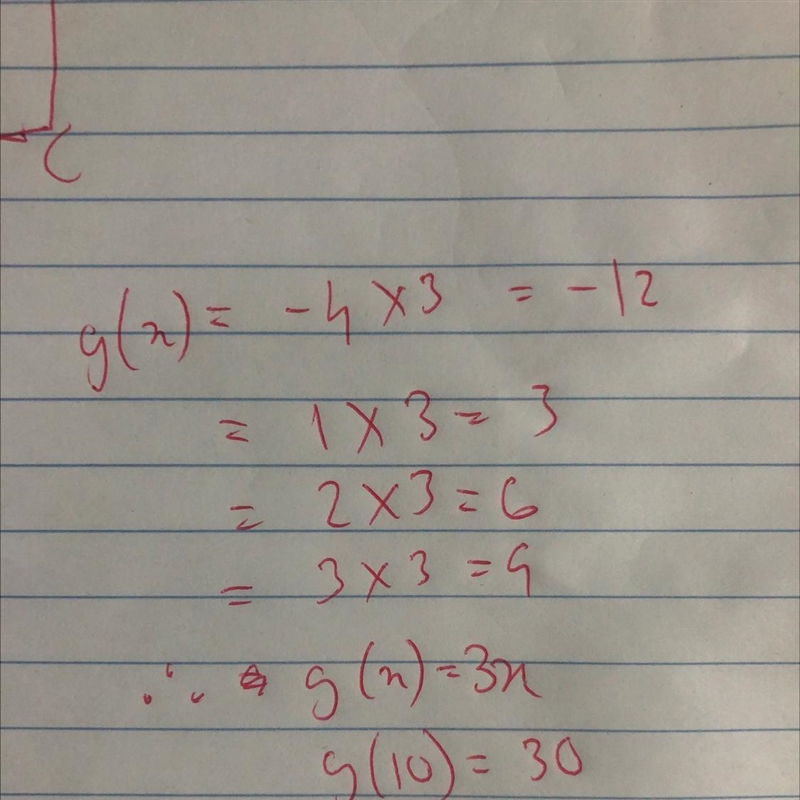 C
g(x) = -4 × 3 = -12
= 1 × 3 = 3
= 2 × 3 = 6
= 3 × 3 = 9
∴ g(x) = 3x
g(10) = 30